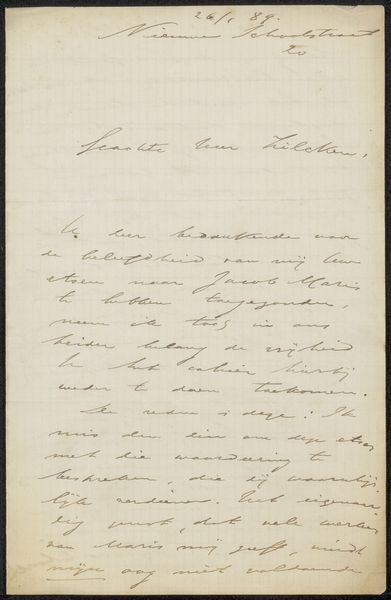 26/1 89.
Nieuwe Schoolstraat
Geachte Heer Zilcken,
U zeer bedankende voor
de beleefdheid van mij Uw
etsen naar Jacob Maris
te hebben toegezonden,
neem ik toch in ons
beider belang de vrijheid
U het cahier hierbij
weder te doen toekomen.
De reden is deze: Ik
mis den zin om deze etsen
met die waardeering te
bespreken, die zij waarschijn-
lijk verdienen. Het eigenaar-
dig genot, dat vele werken
van Maris mij geeft, vindt
mijn oog niet voldoende